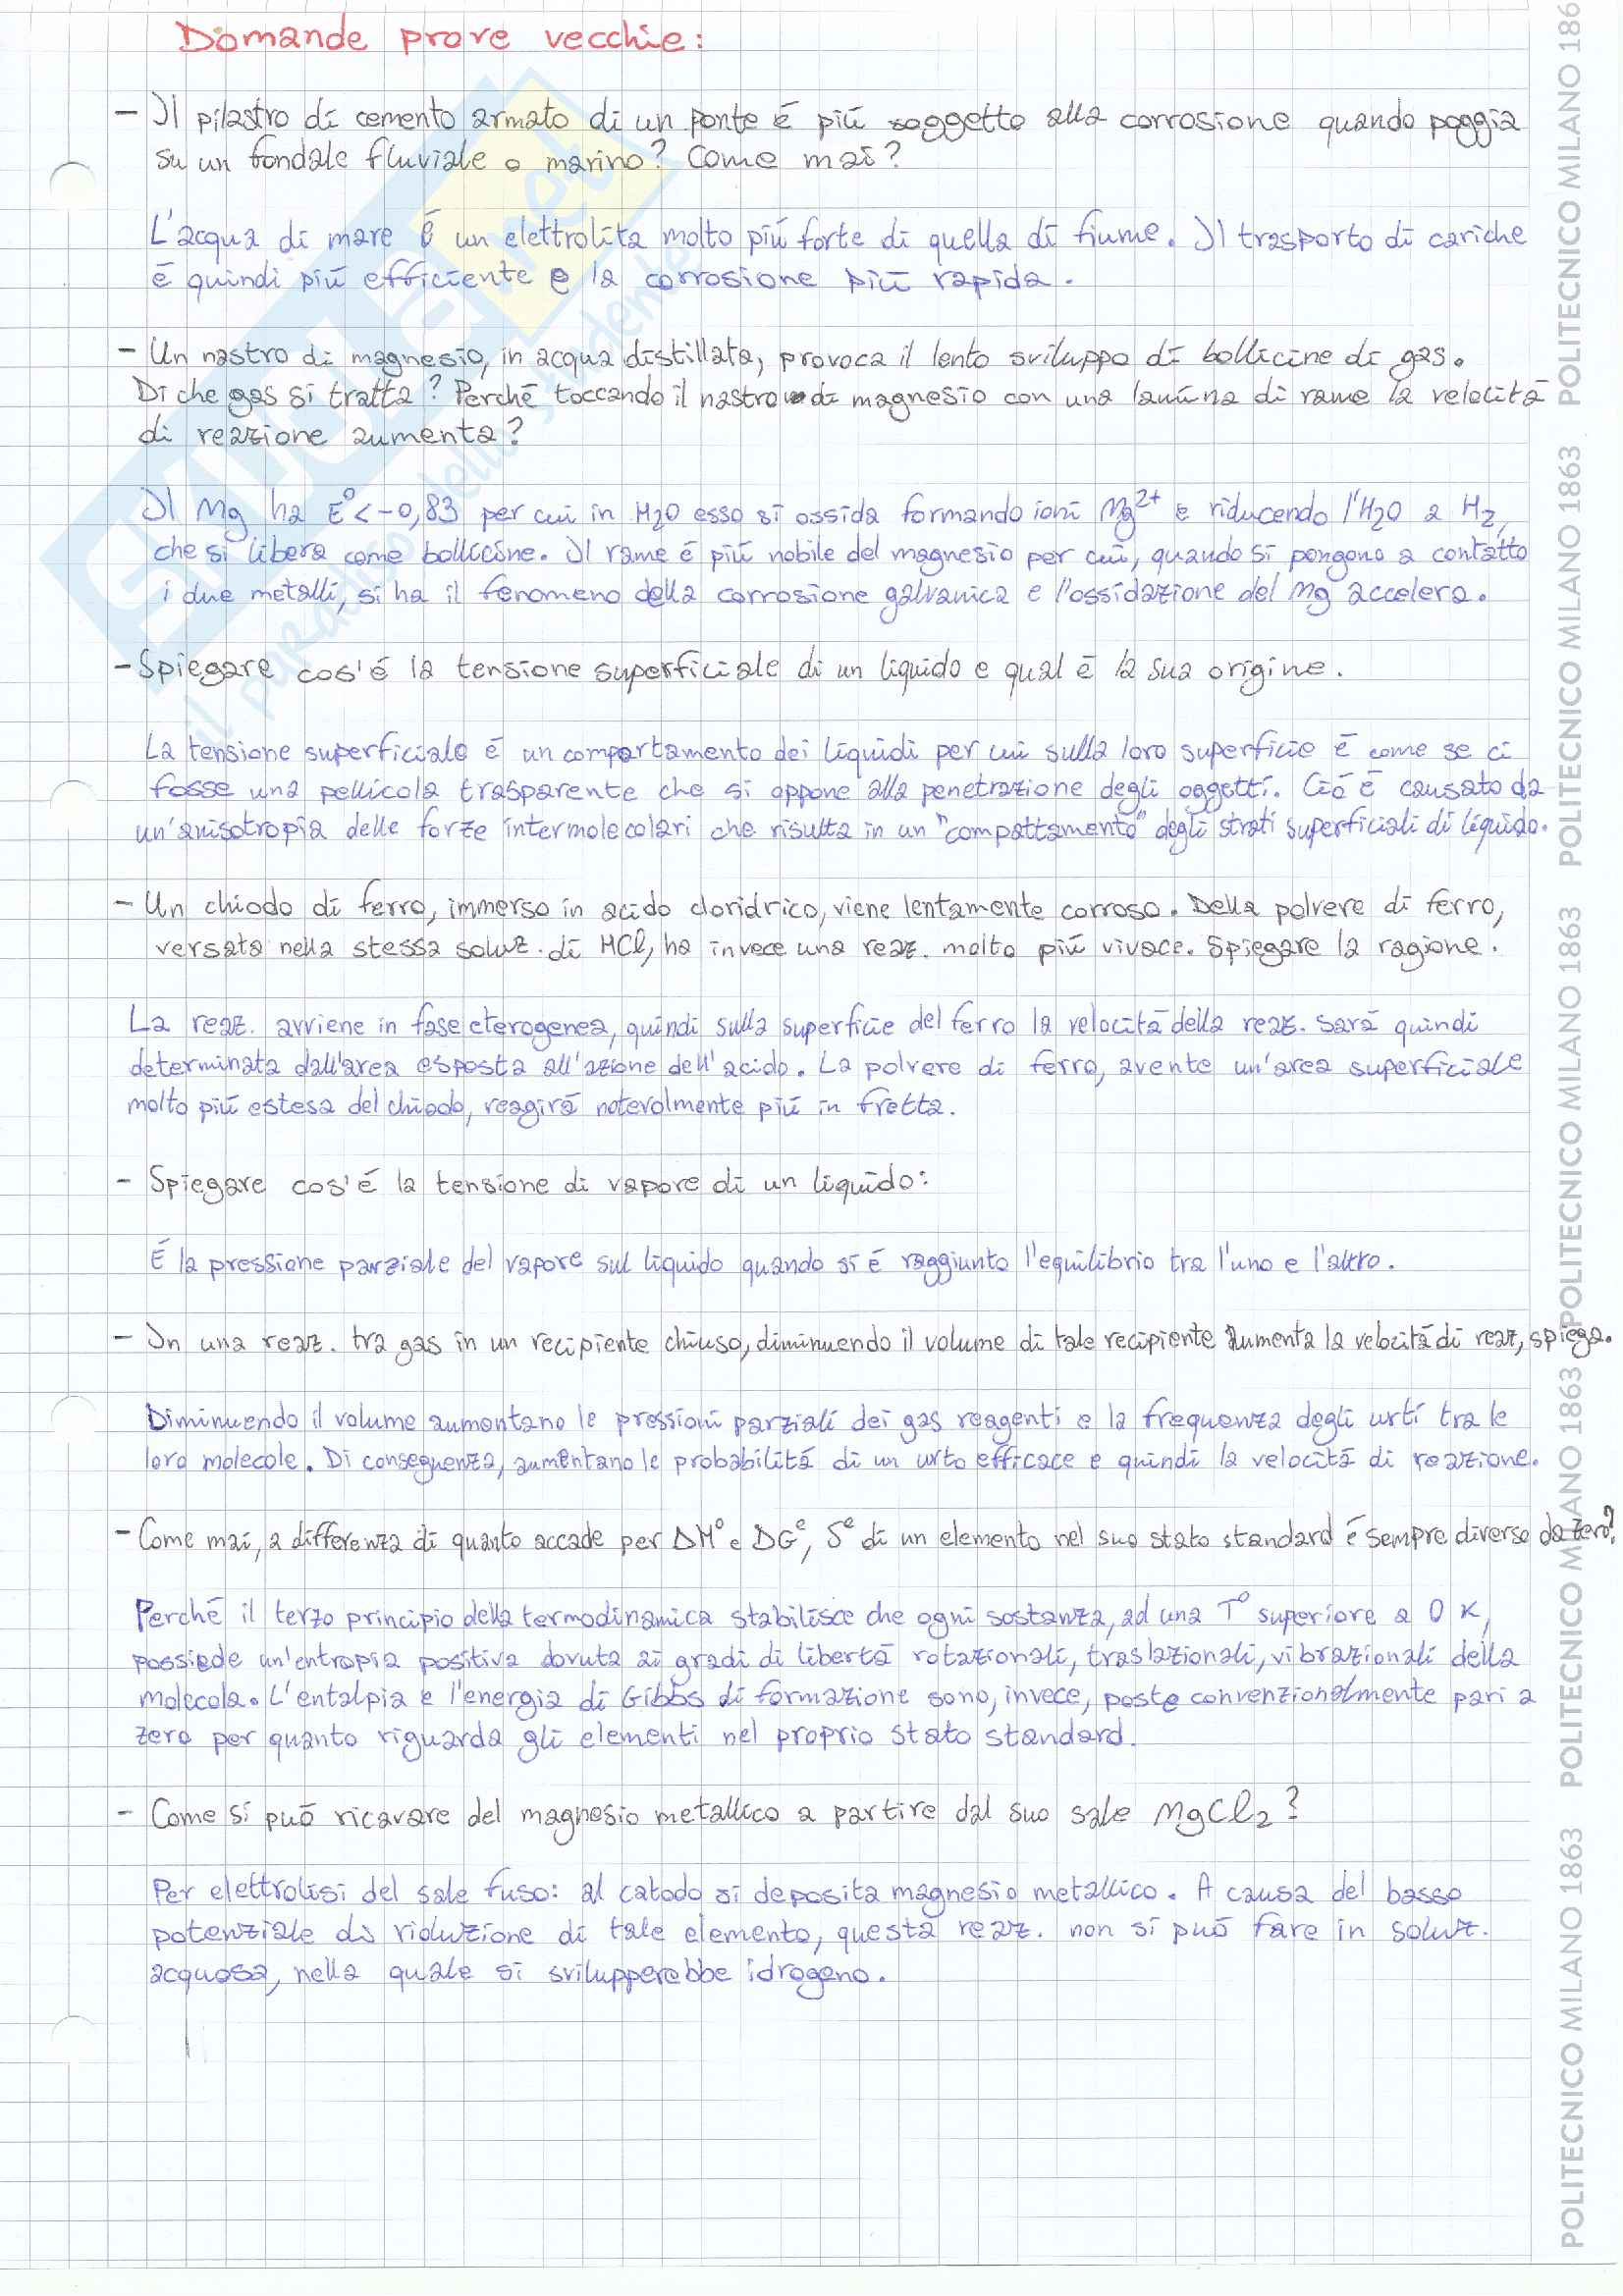 Domande prove vecchie:
- Il pilastro di cemento armato di un ponte é più soggetto alla corrosione quando poggia
su un fondale fluviale o marino? Come mai?
L'acqua di mare é un elettrolita molto più forte di quella di fiume. Il trasporto di cariche
é quindi più efficiente e la corrosione più rapida.
- Un nastro di magnesio, in acqua distillata, provoca il lento sviluppo di bollicine di gas.
Di che gas si tratta? Perché toccando il nastro di magnesio con una lamina di rame la velocità
di reazione aumenta?
Il Mg ha E° < -0,83 per cui in H2O esso si ossida formando ioni Mg²⁺ e riducendo l'H2O a H2,
che si libera come bollicine. Il rame é più nobile del magnesio per cui, quando si pongono a contatto
i due metalli, si ha il fenomeno della corrosione galvanica e l'ossidazione del Mg accelera.
- Spiegare cos'é la tensione superficiale di un liquido e qual é la sua origine.
La tensione superficiale é un comportamento dei liquidi per cui sulla loro superficie é come se ci
fosse una pellicola trasparente che si oppone alla penetrazione degli oggetti. Ció é causato da
un'anisotropia delle forze intermolecolari che risulta in un "compattamento" degli strati superficiali di liquido.
- Un chiodo di ferro, immerso in acido cloridrico, viene lentamente corroso. Della polvere di ferro,
versata nella stessa soluz. di HCl, ha invece una reaz. molto più vivace. Spiegare la ragione.
La reaz. avviene in fase eterogenea, quindi sulla superficie del ferro la velocità della reaz. sarà quindi
determinata dall'area esposta all'azione dell'acido. La polvere di ferro, avente un'area superficiale
molto più estesa del chiodo, reagirà notevolmente più in fretta.
- Spiegare cos'é la tensione di vapore di un liquido:
É la pressione parziale del vapore sul liquido quando si é raggiunto l'equilibrio tra l'uno e l'altro.
- In una reaz. tra gas in un recipiente chiuso, diminuendo il volume di tale recipiente aumenta la velocità di reaz, spiega.
Diminuendo il volume aumentano le pressioni parziali dei gas reagenti e la frequenza degli urti tra le
loro molecole. Di conseguenza, aumentano le probabilità di un urto efficace e quindi la velocità di reazione.
- Come mai, a differenza di quanto accade per ΔH° e ΔG°, S° di un elemento nel suo stato standard é sempre diverso da zero?
Perché il terzo principio della termodinamica stabilisce che ogni sostanza, ad una T° superiore a 0 K,
possiede un'entropia positiva dovuta ai gradi di libertà rotazionali, traslazionali, vibrazionali della
molecola. L'entalpia e l'energia di Gibbs di formazione sono, invece, poste convenzionalmente pari a
zero per quanto riguarda gli elementi nel proprio stato standard.
- Come si può ricavare del magnesio metallico a partire dal suo sale MgCl2?
Per elettrolisi del sale fuso: al catodo si deposita magnesio metallico. A causa del basso
potenziale di riduzione di tale elemento, questa reaz. non si può fare in soluz.
acquosa, nella quale si svilupperebbe idrogeno.
POLITECNICO MILANO 1863 POLITECNICO MILANO 1863 POLITECNICO MILANO 1863 POLITECNICO MILANO 1863 POLITECNICO MILANO 186
SKUOLA.net
il paradiso dello studente